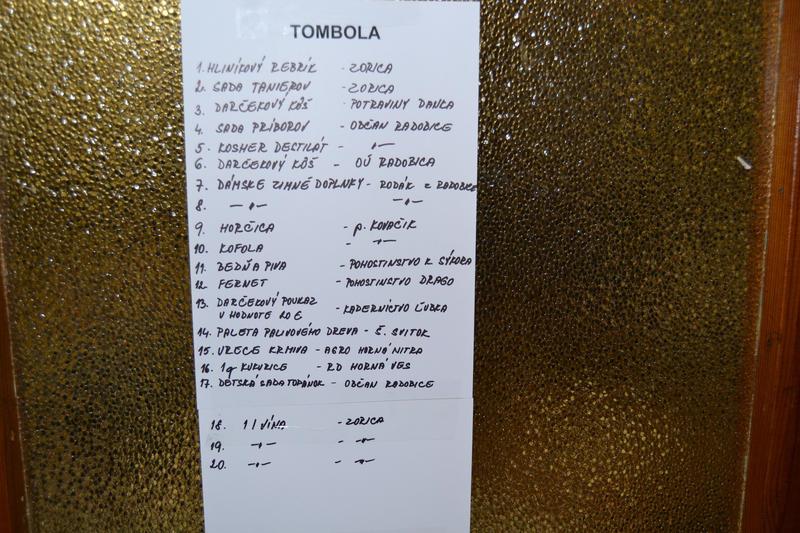 TOMBOLA
1. HLINÍKOVÝ REBRÍK - ZORICA
2. SADA TANIEROV - ZORICA
3. DARČEKOVÝ KÔŠ - POTRAVINY DANKA
4. SADA PRÍBOROV - OBČAN RADOBICE
5. KOSHER DESTILÁT - -"-
6. DARČEKOVÝ KÔŠ - OÚ RADOBICA
7. DÁMSKE ZIMNÉ DOPLNKY - RODÁK Z RADOBICE
8. -"- -"-
9. HORČICA - p. KOVAČIK
10. KOFOLA - -"-
11. BEDŇA PIVA - POHOSTINSTVO K. SÝKORA
12. FERNET - POHOSTINSTVO DRAGO
13. DARČEKOVÝ POUKAZ
V HODNOTE 20 € - KADERNÍCTVO ĽUBKA
14. PALETA PALIVOVÉHO DREVA - Š. SVITOK
15. VRECE KRMIVA - AGRO HORNÁ NITRA
16. 1q KUKURICE - RD HORNÁ VES
17. DETSKÁ SADA TOPÁNOK - OBČAN RADOBICE
18. 1 l VÍNA - ZORICA
19. -"- - -"-
20. -"- - -"-